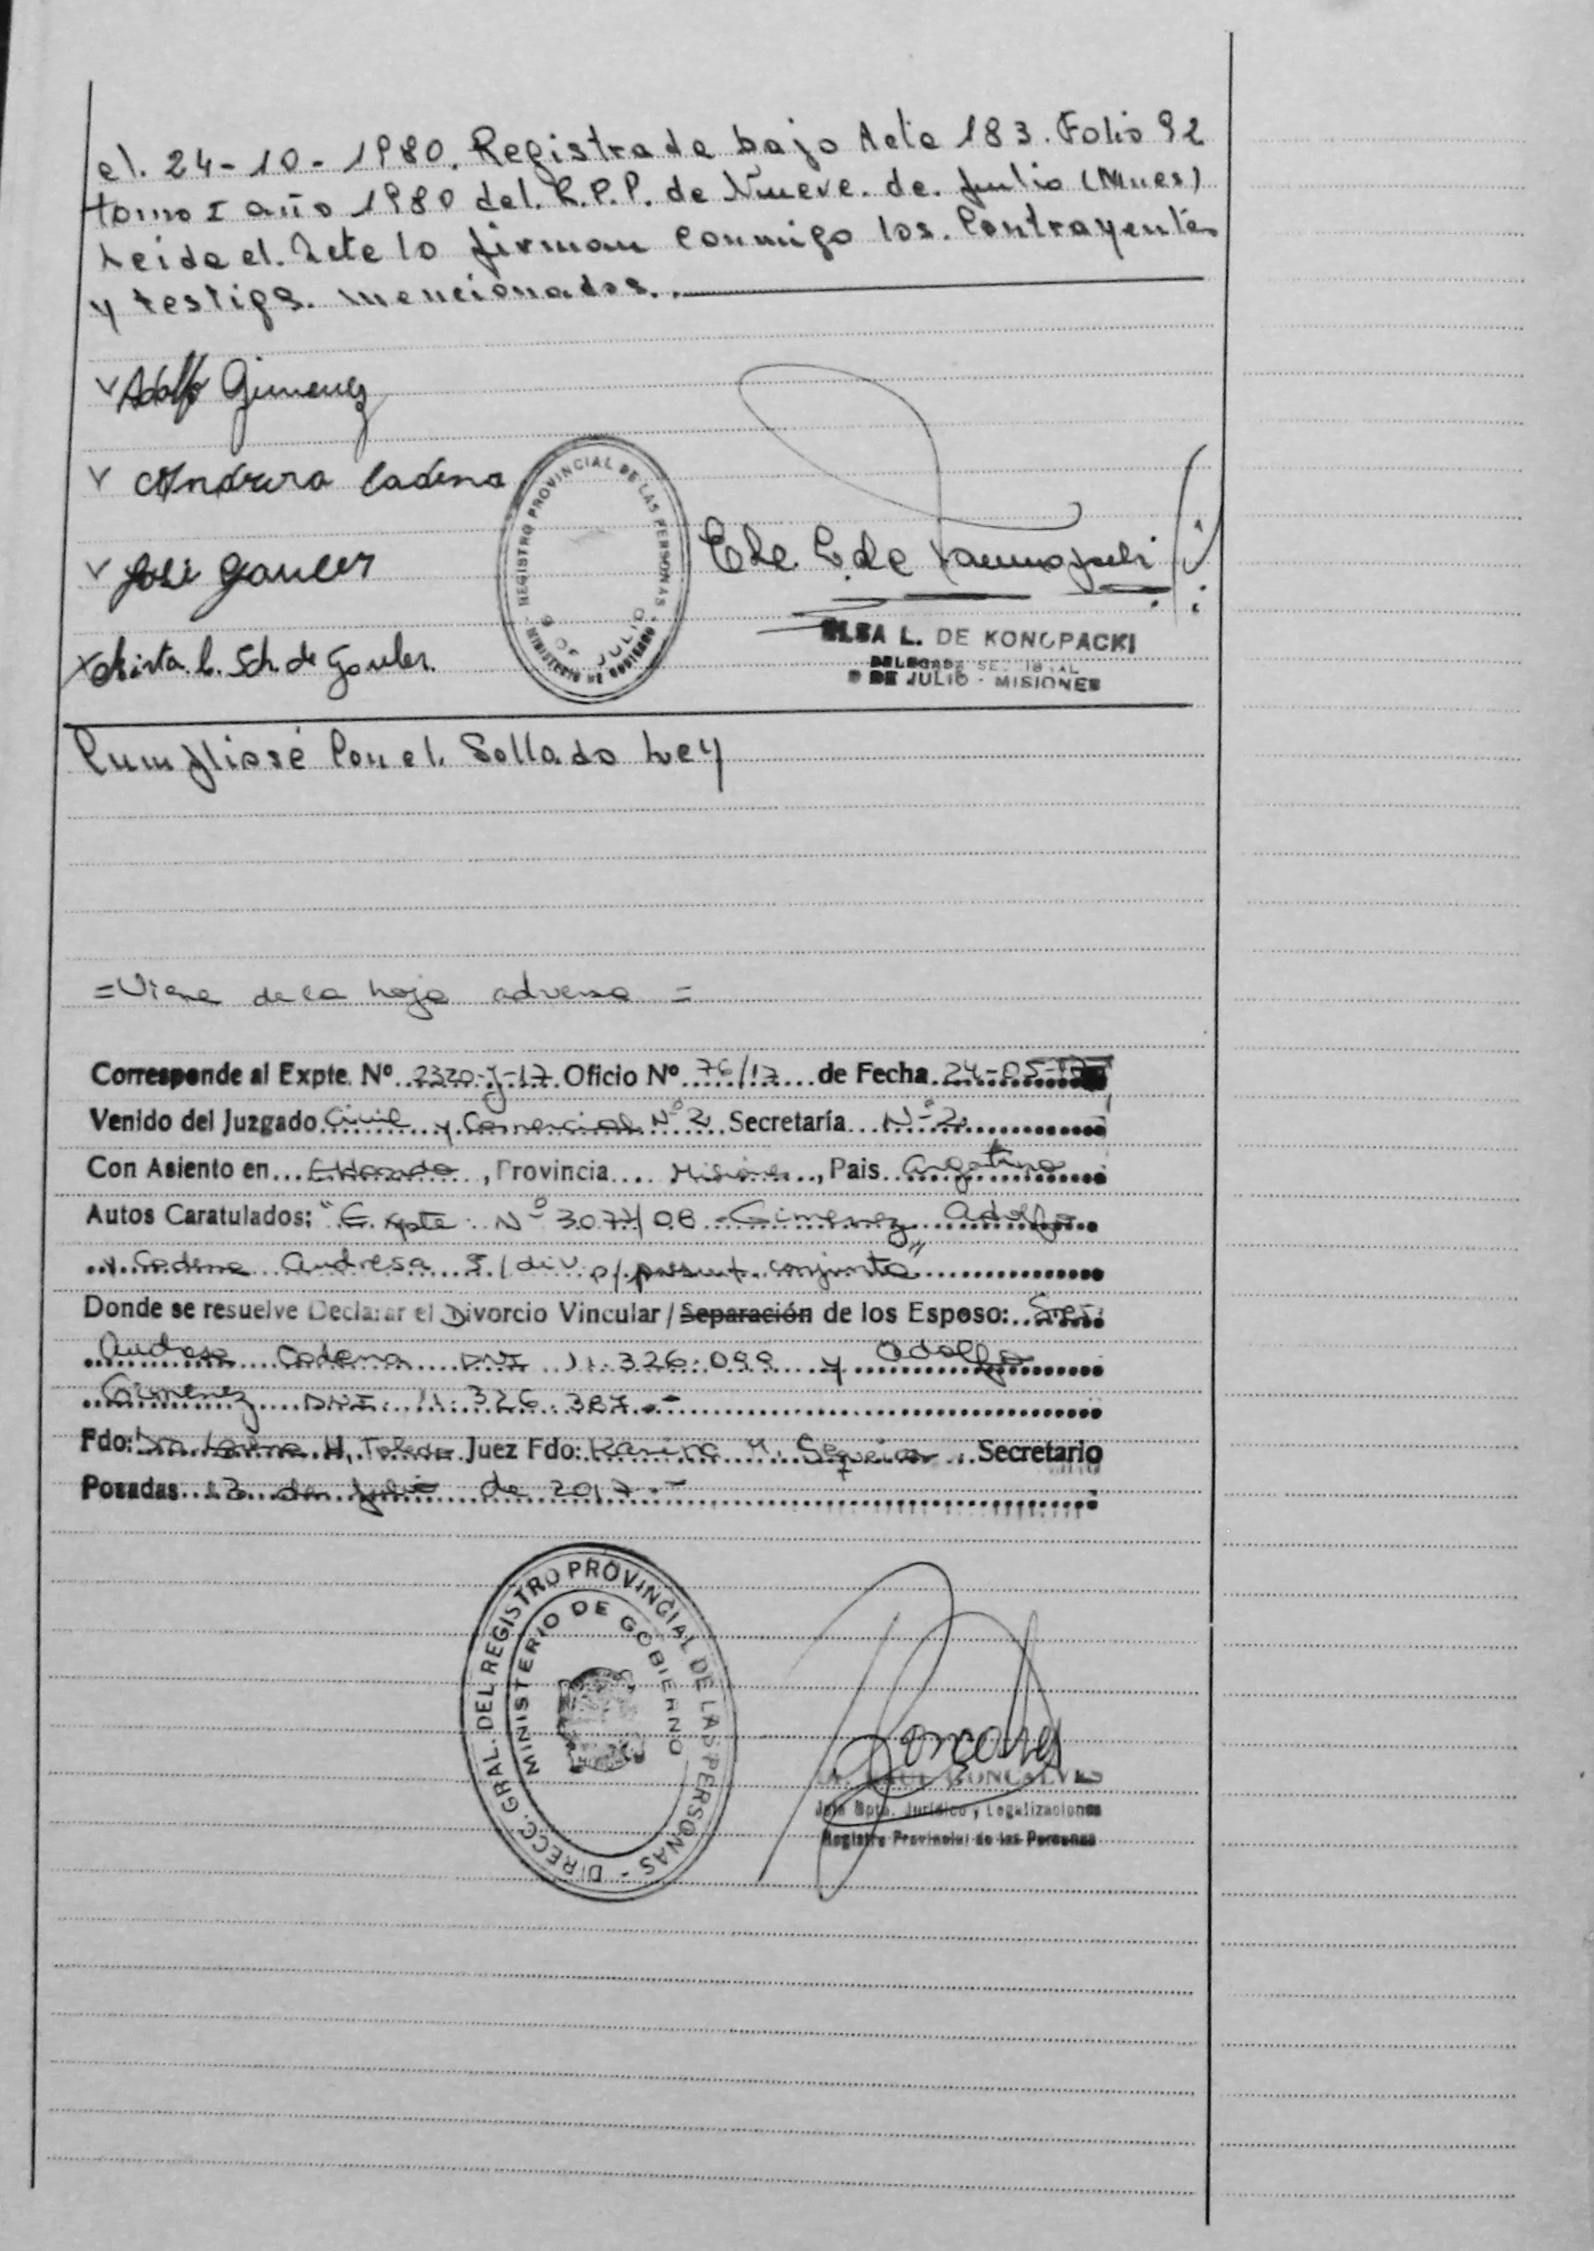 el. 24-10-1980. Registrada bajo Acta 183. Folio 92
tomo I año 1980 del. R.P.P. de Nueve. de. Julio (Mnes)
Leida el. Acta lo firman conmigo los. Contrayentes
y testigs. mencionados.
Adolfo Gimenez
Andresa Cadena
José Gauler
Mirta. L. Sch. de Gauler.
REGISTRO PROVINCIAL DE LAS PERSONAS
9 DE JULIO
MINISTERIO DE GOBIERNO
ELSA L. DE KONOPACKI
DELEGADA
9 DE JULIO - MISIONES
Cumpliose Con el. Sellado Ley
= Viene de la hoja adversa =
Corresponde al Expte. Nº 2320-J-17 Oficio Nº 76/17 de Fecha 24-05-17
Venido del Juzgado Civil y Comercial Nº 2 Secretaría Nº 2
Con Asiento en Eldorado, Provincia Misiones, Pais Argentina
Autos Caratulados: "Expte. Nº 3077/08 Gimenez Adolfo
y Cadena Andresa S/ div. p/ present. conjunta"
Donde se resuelve Declarar el Divorcio Vincular / Separación de los Esposo: Sres.
Andresa Cadena DNI 11.326.099 y Adolfo
Gimenez DNI. 11.326.387.-
Fdo: Dra. H. Toledo Juez Fdo: Karina M. Sequeira Secretario
Posadas 13 de julio de 2017.-
DIRECC. GRAL. DEL REGISTRO PROVINCIAL DE LAS PERSONAS -
MINISTERIO DE GOBIERNO
RAUL GONCALVES
Jefe Dpto. Jurídico y Legalizaciones
Registro Provincial de las Personas